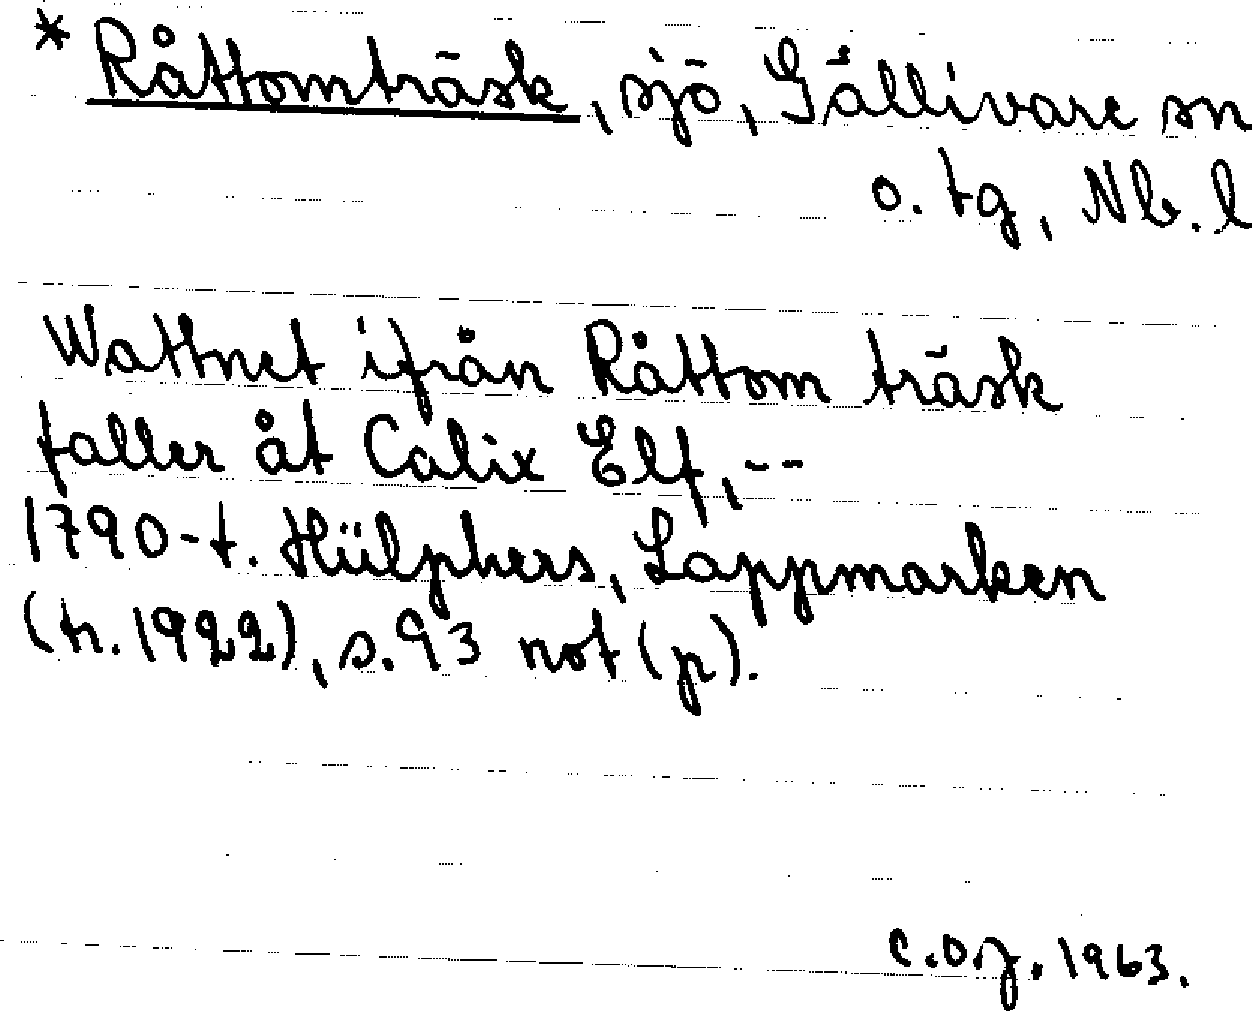 * Råttomträsk, sjö, Gällivare sn
o. tg, Nb. l
Wattnet ifrån Råttom träsk
faller åt Calix Elf, --
1790-t. Hülphers, Lappmarken
(tr. 1922), s. 93 not (p).
C.O.J. 1963.